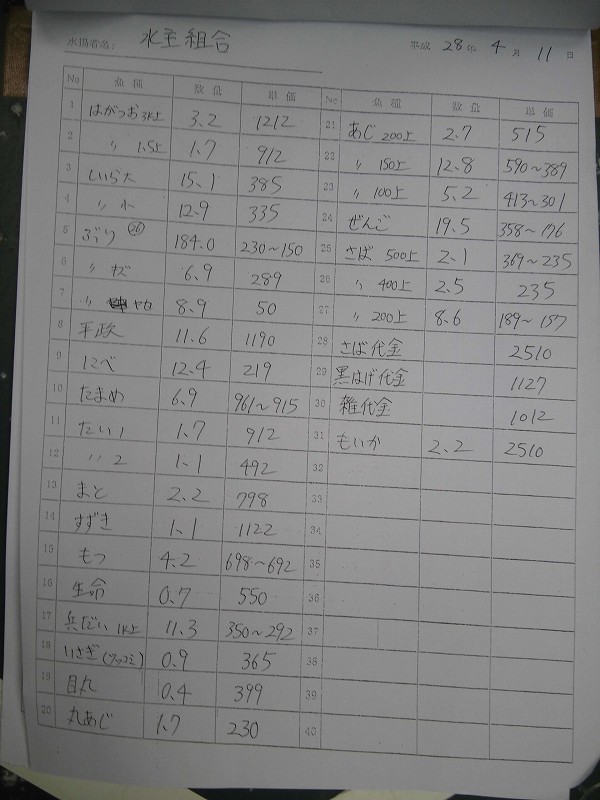 水揚者名: 水主組合 平成 28年 4月 11日
No 魚種 数量 単価
1 はがつお3k上 3.2 1212
2 〃 1.5上 1.7 912
3 しいら大 15.1 385
4 〃 小 12.9 335
5 ぶり ㉖ 184.0 230~150
6 〃 ヤズ 6.9 289
7 〃 ヤカ 8.9 50
8 平政 11.6 1190
9 にべ 12.4 219
10 たまめ 6.9 961~915
11 たい 1 1.7 912
12 〃 2 1.1 492
13 まと 2.2 798
14 すずき 1.1 1122
15 もつ 4.2 698~692
16 生命 0.7 550
17 兵だい 1k上 11.3 350~292
18 いさぎ(ツッコミ) 0.9 365
19 目丸 0.4 399
20 丸あじ 1.7 230
No 魚種 数量 単価
21 あじ 200上 2.7 515
22 〃 150上 12.8 590~389
23 〃 100上 5.2 413~301
24 ぜんご 19.5 358~176
25 さば 500上 2.1 369~235
26 〃 400上 2.5 235
27 〃 200上 8.6 189~187
28 さば代金 2510
29 黒はげ代金 1127
30 雑代金 1012
31 もいか 2.2 2510
32
33
34
35
36
37
38
39
40